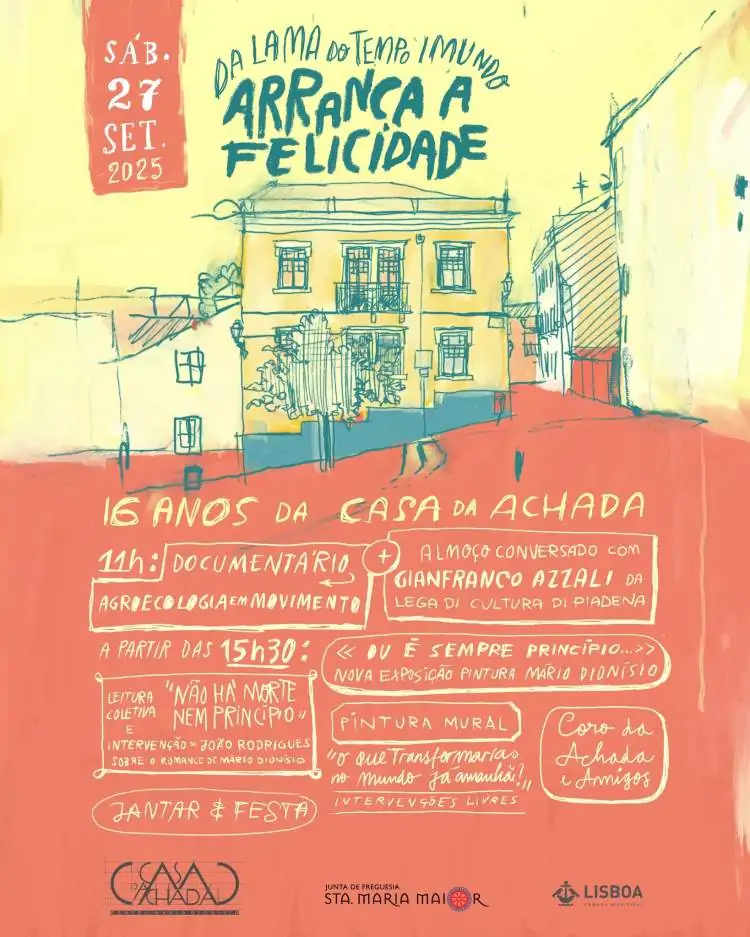 SÁB.
27
SET.
2025
DA LAMA DO TEMPO IMUNDO
ARRANCA A
FELICIDADE
16 ANOS DA CASA DA ACHADA
11h: DOCUMENTÁRIO
AGROECOLOGIA EM MOVIMENTO
+
ALMOÇO CONVERSADO COM
GIANFRANCO AZZALI DA
LEGA DI CULTURA DI PIADENA
A PARTIR DAS 15h30:
<< OU É SEMPRE PRINCÍPIO...>>
NOVA EXPOSIÇÃO PINTURA MÁRIO DIONÍSIO
LEITURA
COLETIVA
E
"NÃO HÁ MORTE
NEM PRINCÍPIO"
INTERVENÇÃO DE JOÃO RODRIGUES
SOBRE O ROMANCE DE MÁRIO DIONÍSIO
PINTURA MURAL
"O que Transformarias
no mundo já amanhã?"
INTERVENÇÕES LIVRES
Coro da
Achada
e Amigos
JANTAR & FESTA
CASA
DA ACHADA
CENTRO MÁRIO DIONÍSIO
JUNTA DE FREGUESIA
STA. MARIA MAIOR
LISBOA
CÂMARA MUNICIPAL